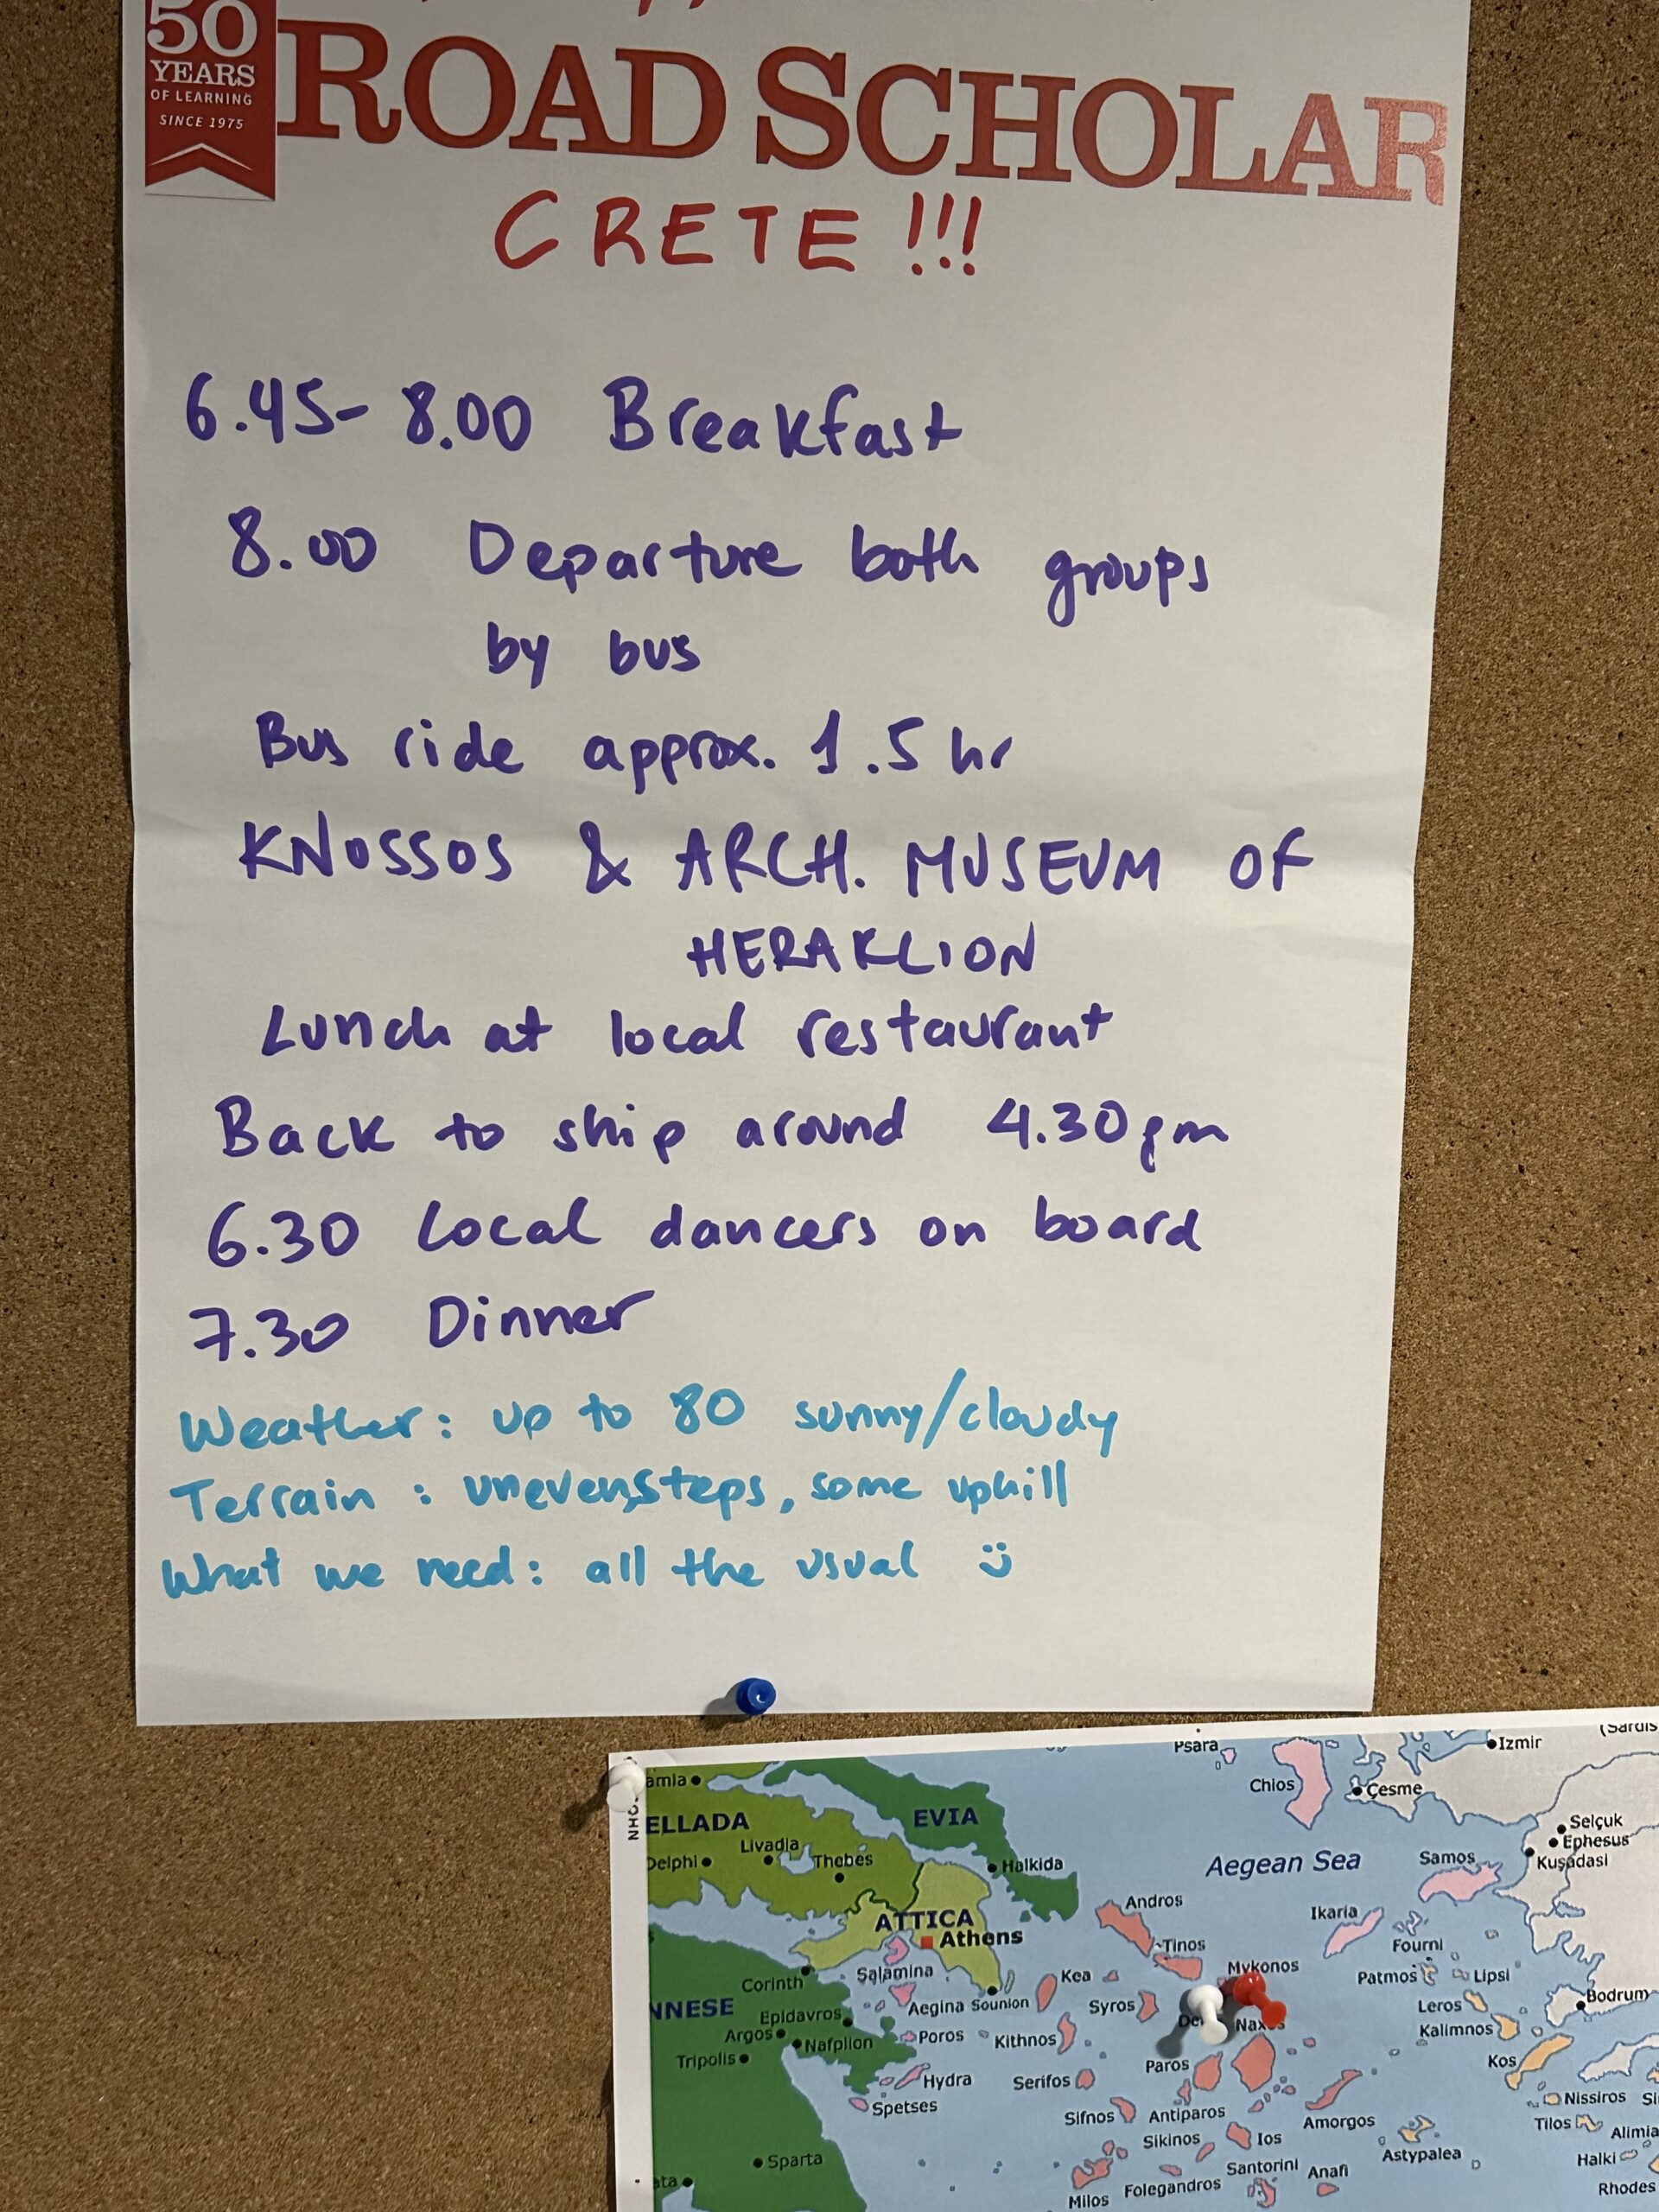 50
YEARS
OF LEARNING
SINCE 1975
ROAD SCHOLAR
CRETE!!!
6.45- 8.00 Breakfast
8.00 Departure both groups
by bus
Bus ride approx. 1.5 hr
KNOSSOS & ARCH. MUSEUM OF
HERAKLION
Lunch at local restaurant
Back to ship around 4.30pm
6.30 Local dancers on board
7.30 Dinner
Weather: up to 80 sunny/cloudy
Terrain: uneven, steps, some uphill
What we need: all the usual ü
Psara
Izmir
amia
Chios
Çesme
ELLADA
EVIA
Selçuk
Ephesus
Kuşadasi
Delphi
Livadia
Thebes
Halkida
Aegean Sea
Samos
Andros
ATTICA
Athens
Ikaria
Fourni
Tinos
Corinth
Salamina
Kea
Mykonos
Patmos
Lipsi
NNESE
Epidavros
Aegina
Sounion
Syros
Leros
Bodrum
Argos
Nafplion
Poros
Kithnos
Kalimnos
Tripolis
Hydra
Serifos
Paros
Kos
Spetses
Sifnos
Antiparos
Amorgos
Nissiros
Tilos
Sikinos
Ios
Astypalea
Halki
Sparta
Milos
Folegandros
Santorini
Anafi
Rhodes